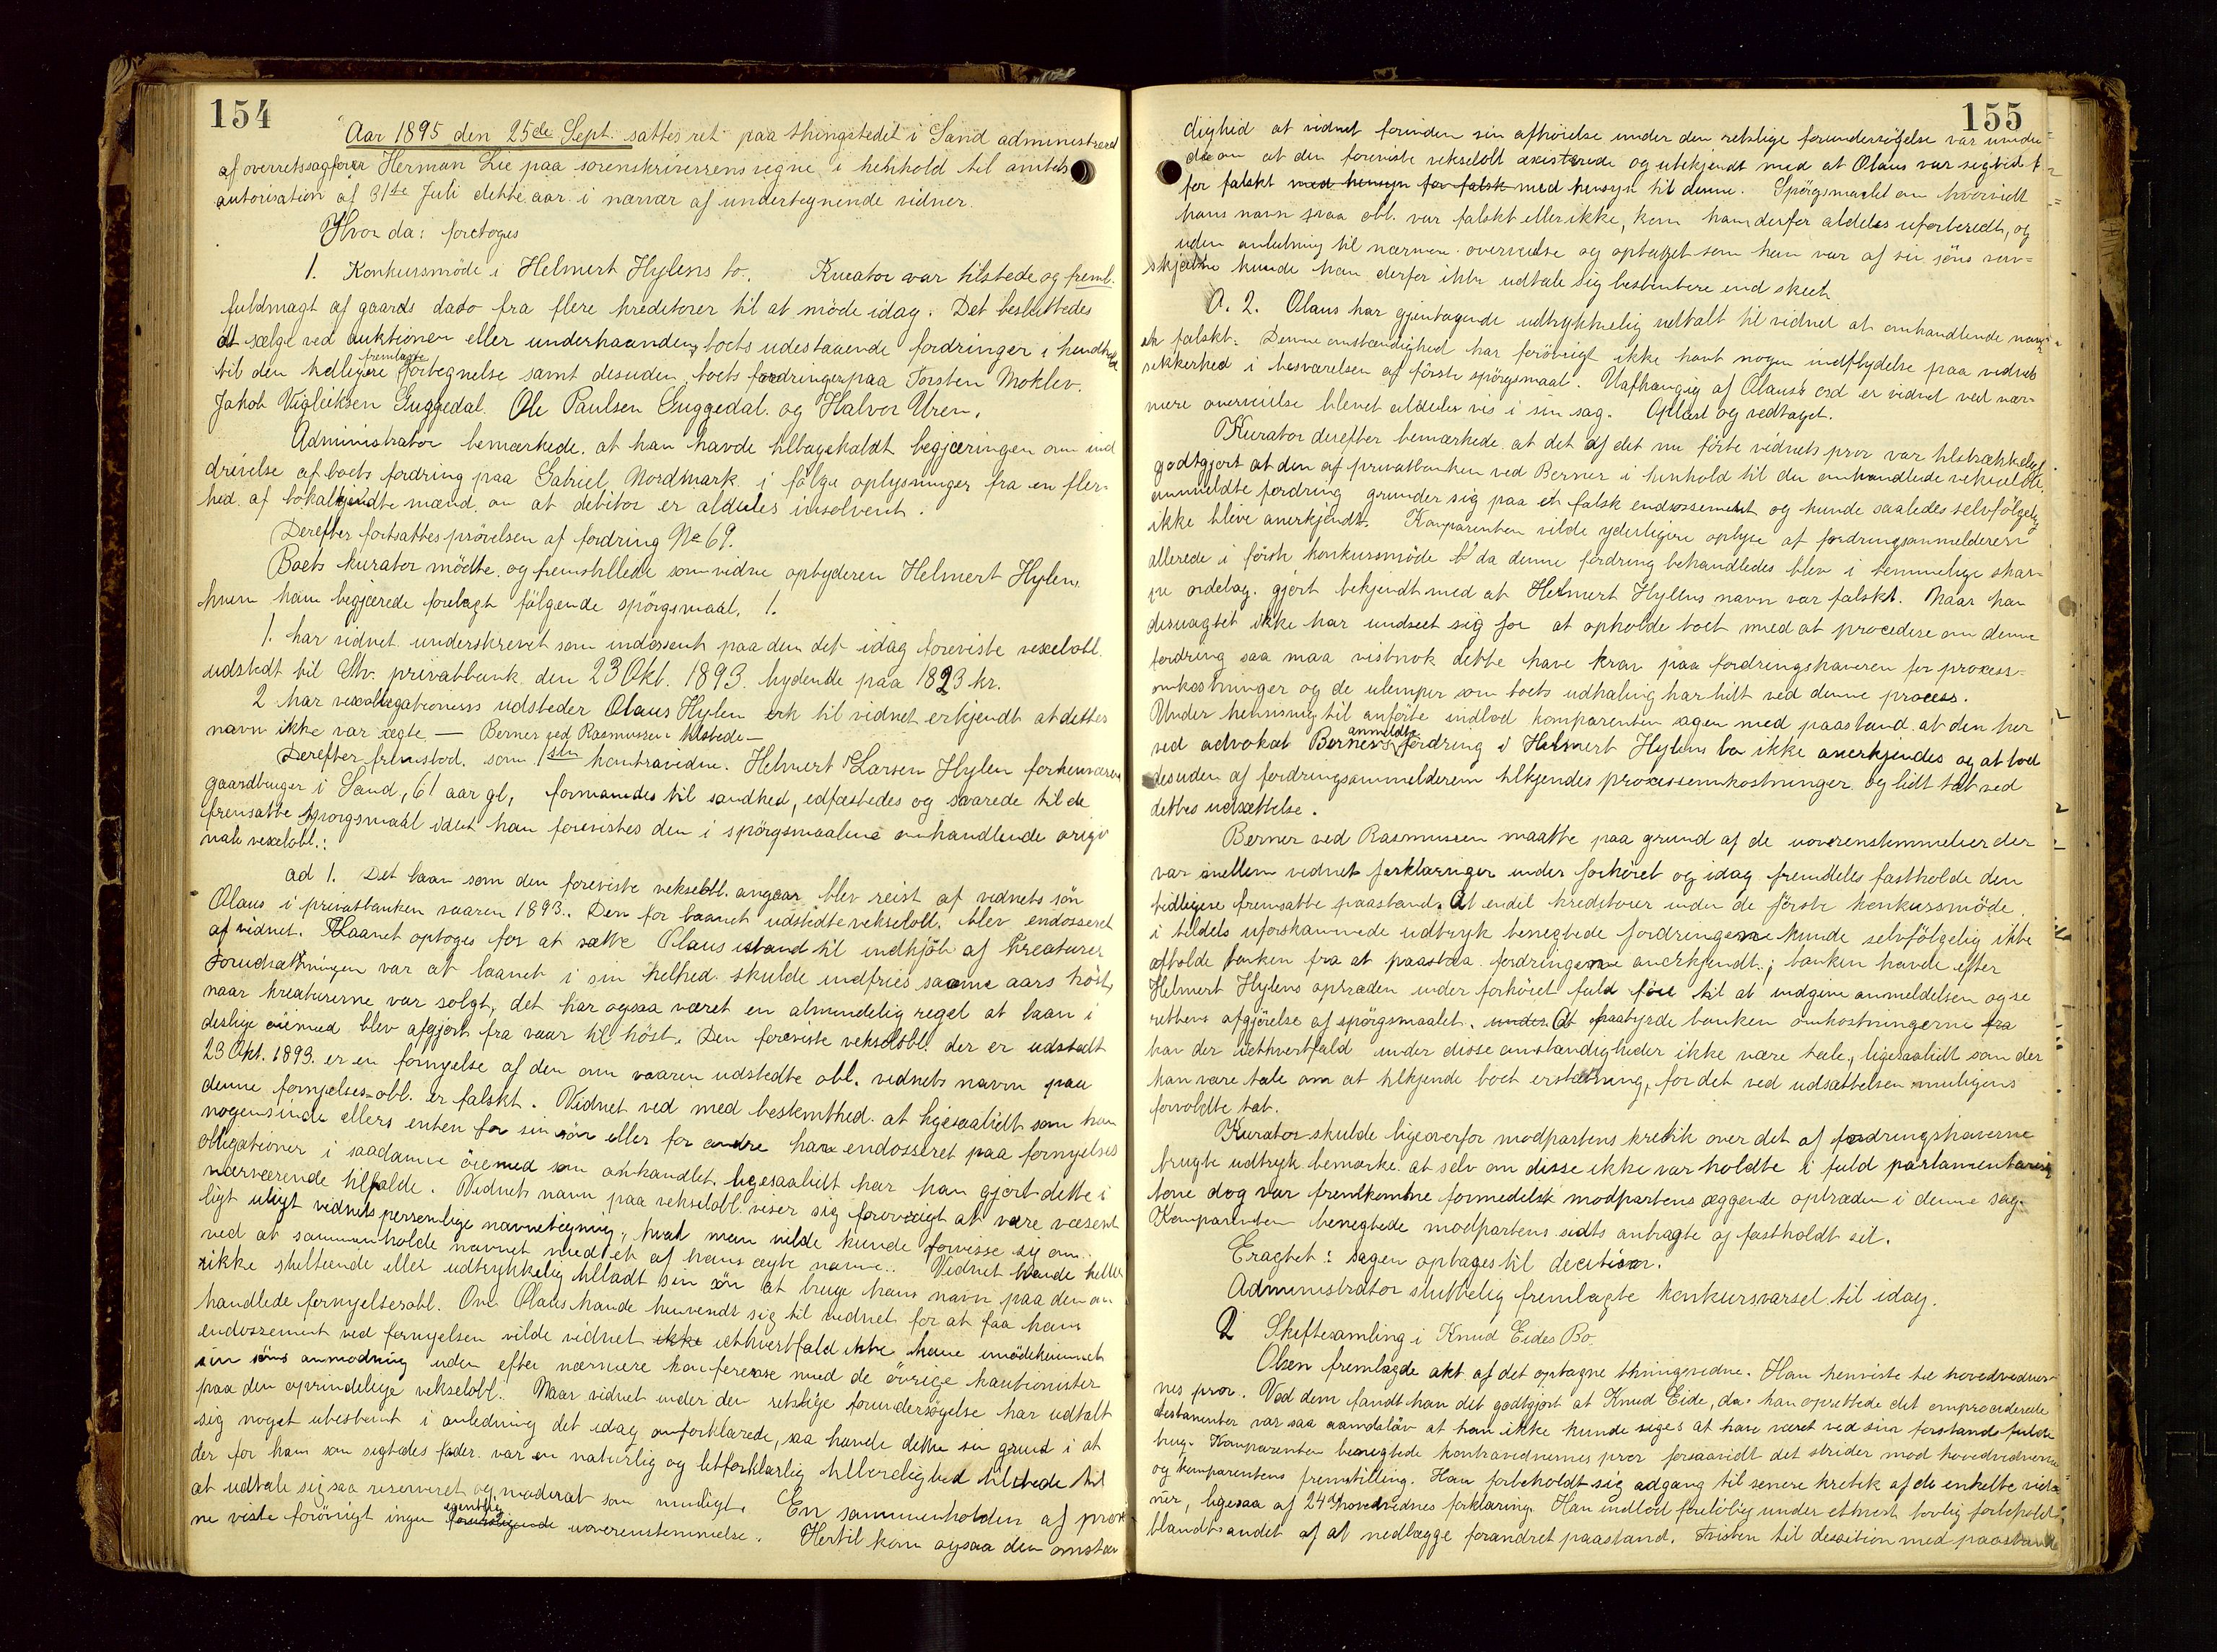 154
Aar 1895 den 25de Sept. sattes ret paa thingstedet i Sand administreret
af overretssagfører Herman Lie paa sorenskriverens vegne i henhold til amtets
autorisation af 31te Juli dette aar i nærvær af undertegnende vidner.
Hvor da: foretoges
1. Konkursmöde i Helmert Hylens bo. Kurator var tilstede og freml.
fuldmagt af gaards dato fra flere kreditorer til at möde idag. Det besluttedes
at sælge ved auktionen eller underhaanden boets udestaaende fordringer i henhold
til den tidligere fremlagte fortegnelse samt desuden boets fordringer paa Torsten Moklev.
Jakob Vigleiksen Guggedal. Ole Paulsen Guggedal. og Halvor Uren.
Administrator bemærkede. at han havde tilbagekaldt begjæringen om ind
drivelse af boets fordring paa Gabriel Nordmark. i fölge oplysninger fra en fler-
hed af lokalkjendte mænd. om at debitor er aldeles insolvent.
Derefter fortsattes prövelsen af fordring No 69.
Boets kurator mödte. og fremstillede som vidne opbyderen Helmert Hylen,
hvem han begjærede forelagt fölgende spörgsmaal. 1.
1. har vidnet underskrevet som endossent paa den det idag foreviste vexelobl.
udstedt til Stv. privatbank den 23 Okt. 1893. lydende paa 1823 kr.
2 har vexelobligationens udsteder Olaus Hylen til vidnet erkjendt at dettes
navn ikke var ægte — Berner ved Rasmussen tilstede —
Derefter fremstod. som 1ste kontravidne. Helmert Larsen Hylen forhenværende
gaardbruger i Sand, 61 aar gl, formanedes til sandhed, edfæstedes og svarede til de
fremsatte spörgsmaal idet han forevistes den i spörgsmaalene omhandlende origi
nale vexelobl.:
ad 1. Det laan som den foreviste vekselobl. angaar blev reist af vidnets sön
Olaus i privatbanken vaaren 1893. Den for laanet udstedte vekselobl. blev endosseret
af vidnet. Laanet optoges for at sætte Olaus istand til indkjöb af kreaturer
Forudsætningen var at laanet i sin helhed skulde indfries samme aars höst,
naar kreaturerne var solgt, det har ogsaa været en almindelig regel at laan i
deslige öiemed blev afgjort fra vaar til höst. Den foreviste vekselobl. der er udstedt
23 Okt. 1893. er en fornyelse af den om vaaren udstedte obl. vidnets navn paa
denne fornyelses-obl. er falskt. Vidnet ved med bestemthed. at ligesaalidt som han
nogensinde ellers enten for sin sön eller for andre har endosseret paa fornyelses
obligationer i saadanne öiemed som omhandlet. ligesaalidt har han gjort dette i
nærværende tilfælde. Vidnets navn paa vekselobl. viser sig forövrigt at være væsent
ligt uligt vidnets personlige navnetegning, hvad man vilde kunde forvisse sig om
ved at sammenholde navnet med et af hans ægte navne. Vidnet havde heller
ikke stiltiende eller udtrykkelig tilladt sin sön at bruge hans navn paa den om
handlede fornyelsesobl. Om Olaus havde henvendt sig til vidnet for at faa hans
endossement ved fornyelsen vilde vidnet ikke iethvertfald ikke have imödekommet
sin söns anmodning uden efter nærmere konferense med de övrige kautionister
paa den oprindelige vekselobl. Naar vidnet under den retslige forundersögelse har udtalt
sig noget ubestemt i anledning det idag omforklarede, saa havde dette sin grund i at
der for ham som sigtedes fader. var en naturlig og letforklarlig tilbøielighed tilstede til
at udtale sig saa reserveret og moderat som muligt. En sammenholden af prov
ne viste forövrigt ingen egentlig uoverenstemmelse. Hertil kom ogsaa den omstæn
155
dighed at vidnet forinden sin afhørelse under den retslige forundersögelse var uviden
de om at den foreviste vekselobl. existerede og ubekjendt med at Olaus var sigtet
for falskt med hensyn for falsk med hensyn til denne. Spörgsmaalet om hvorvidt
hans navn paa obl. var falskt eller ikke, kom ham derfor aldeles uforberedt, og
uden anledning til nærmere overveielse og optaget som han var af sin söns van-
skjæbne kunde han derfor ikke udtale sig bestemtere end skeet.
A. 2. Olaus har gjentagende udtrykkelig udtalt til vidnet at omhandlende navn
er falskt. Denne omstændighed har forövrigt ikke havt nogen indflydelse paa vidnets
sikkerhed i besvarelsen af förste spörgsmaal. Uafhængig af Olaus's ord er vidnet ved nær-
mere overveielse blevet aldeles vis i sin sag. Oplæst og vedtaget.
Kurator derefter bemærkede at det af det nu förte vidnets prov var tilstrækkeligt
godtgjort at den af privatbanken ved Berner i henhold til den omhandlede vekselobl.
anmeldte fordring grunder sig paa et falsk endossement og kunde saaledes selvfölgelig
ikke blive anerkjendt. Komparenten vilde yderligere oplyse at fordringsanmelderen
allerede i förste konkursmöde da denne fordring behandledes blev i temmelige skar-
pe ordelag. gjort bekjendt med at Helmert Hylens navn var falskt. Naar han
desuagtet ikke har undseet sig for at opholde boet med at procedere om denne
fordring saa maa vistnok dette have krav paa fordringshaveren for process-
omkostninger og de ulemper som boets udhaling har lidt ved denne process.
Under henvisning til anförte indlod komparenten sagen med paastand. at den her
ved advokat Berner anmeldte fordring i Helmert Hylens bo ikke anerkjendes og at boet
desuden af fordringsanmelderen tilkjendes processomkostninger. og lidt tab ved
dettes udsættelse.
Berner ved Rasmussen maatte paa grund af de uoverenstemmelser der
var mellem vidnets forklaringer under forhöret og idag fremdeles fastholde den
tidligere fremsatte paastand. At endel kreditorer under de förste konkursmöde
i tildels uforskammede udtryk benegtede fordringerne kunde selvfölgelig ikke
afholde banken fra at paastaa fordringerne anerkjendt; banken havde efter
Helmert Hylens optræden under forhöret fuld föie til at indgive anmeldelsen og se
rettens afgjörelse af spörgsmaalet. under At paabyrde banken omkostningerne fra
kan der iethvertfald under disse omstændigheder ikke være tale, ligesaalidt som der
kan være tale om at tilkjende boet erstatning, for det ved udsættelsen muligens
forvoldte tab.
Kurator skulde ligeoverfor modpartens kretik over det af fordringshaverne
brugte udtryk bemærke. at selv om disse ikke var holdte i fuld parlamentarisk
tone dog var fremkomne formedelst modpartens æggende optræden i denne sag.
Komparenten benegtede modpartens sidts antragte og fastholdt sit.
Eragtet: sagen optages til decition.
Administrator sluttelig fremlagte konkursvarsel til idag.
2 Skiftesamling i Knud Eides Bo
Olsen fremlagde akt af det optagne thingsvidne. Han henviste til hovedvidner-
nes prov. Ved dem fandt han det godtgjort at Knud Eide, da han oprettede det omprocederede
testamenter var saa aandslöv at han ikke kunde siges at have været ved sin forstands fulde
brug. Komparenten benegtede kontravidnernes prov forsaavidt det strider mod hovedvidnerne
og komparentens fremstilling. Han forbeholdt sig adgang til senere kretik af de enkelte vid-
ner, ligesaa af 24de hovedvidnes forklaring. Han indlod foreløbig under ethvert lovlig forbehold
blandt andet af at nedlægge forandret paastand. Tvisten til decition med paastand